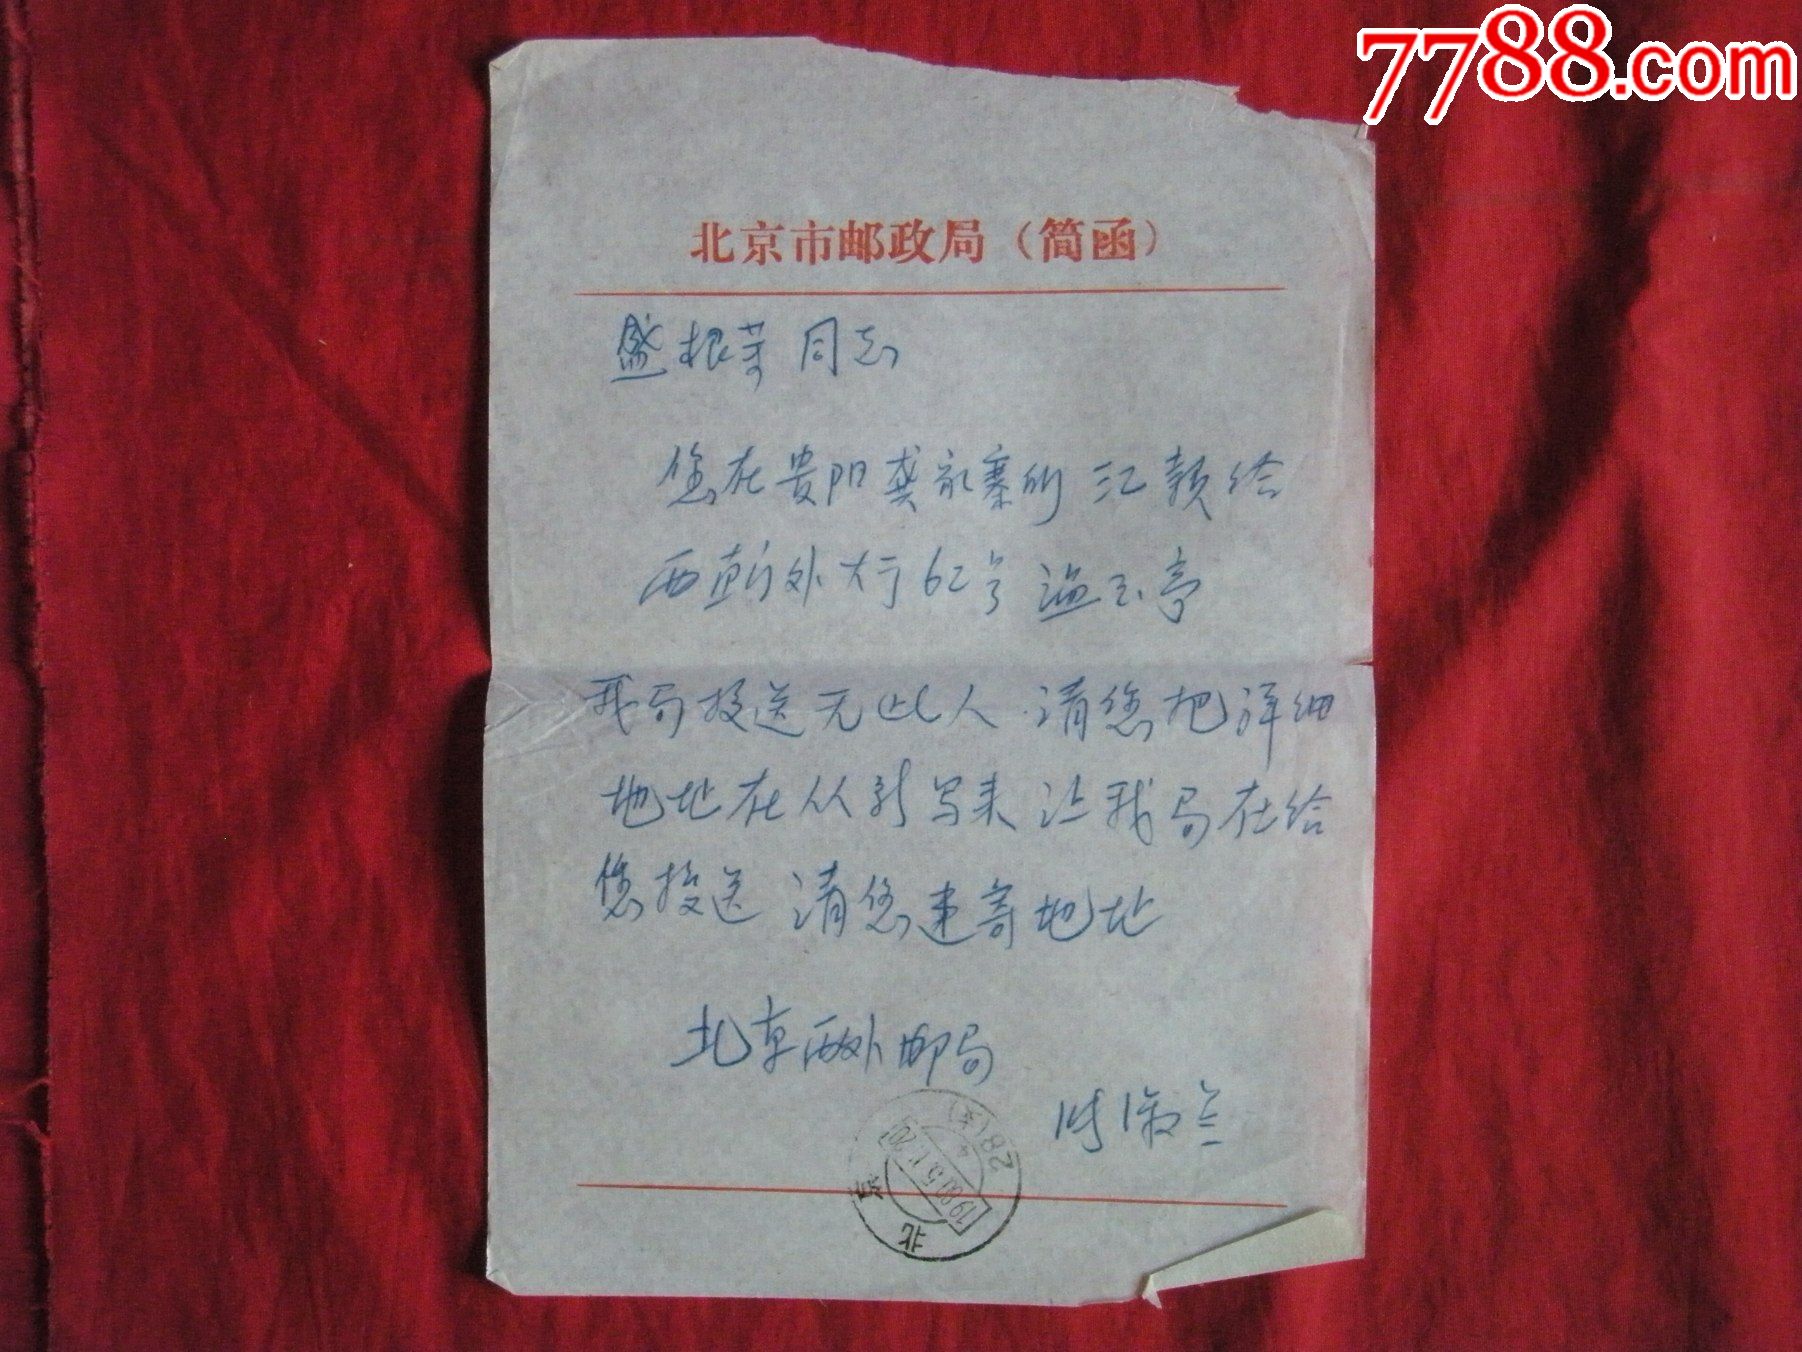 7788.com
北京市邮政局（简函）
盛根芽同志
您在贵阳龚家寨所汇款给
西直外大行62号
我局投送无此人.请您把详细
地址在从新写来让我局在给
您投送 请您速寄地址
北京西外邮局
28(支)
北京